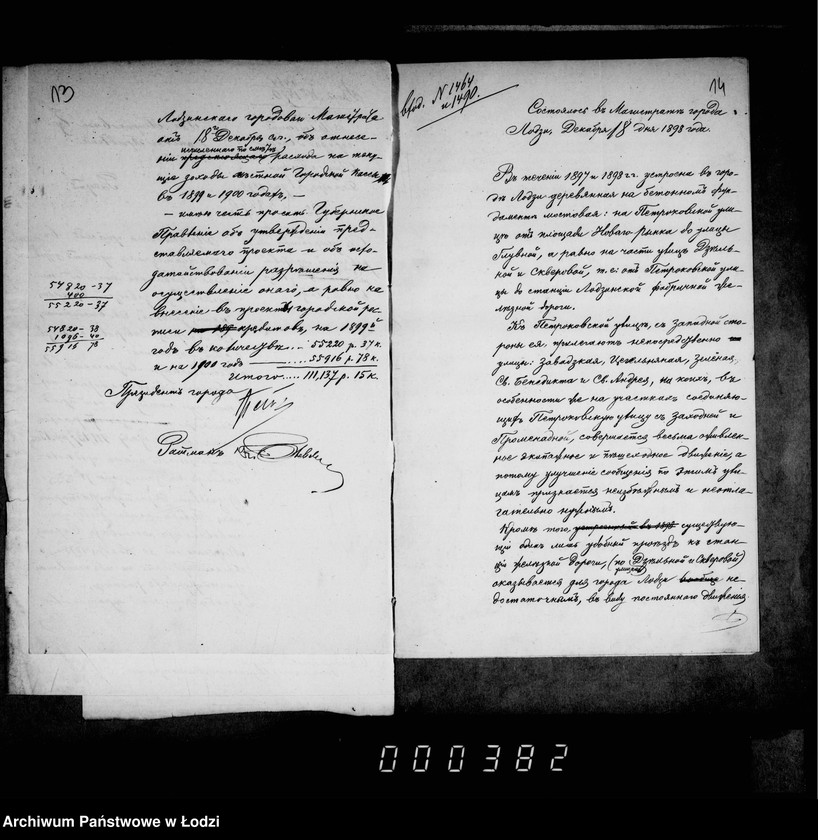 13
Лодзинскаго городоваи Магистрата
отъ 18го Декабря с.г., объ отнесе-
ніи исчисленнаго по смѣтѣ расхода на теку-
щіе доходы мѣстной Городской Кассы
въ 1899 и 1900 годахъ, —
— имѣю честь просить Губернское
Правленіе объ утвержденіи пред-
ставляемаго проекта и объ исхо-
датайствованіи разрѣшенія на
осуществленіе онаго, а равно на
внесеніе въ проекты городской рос-
писи кредитовъ, на 1899й
годъ въ количествѣ... 55220 р. 37 к.
и на 1900 годъ ... 55916 р. 78 к.
Итого.... 111,137 р. 15 к.
Президентъ города
54820-37
400
55220-37
54820-38
1096-40
55916 78
14
вход. N 1464
и 1490.
Состоялось въ Магистратѣ города
Лодзи, Декабря 18 дня 1898 года.
Въ теченіи 1897 и 1898 гг. устроена въ горо-
дѣ Лодзи деревянная на бетонномъ фун-
даментѣ мостовая: на Петроковской ули-
цѣ отъ площади Новаго-рынка до улицы
Главной, а равно на части улицъ Дзѣль-
ной и Скверовой, т.е. отъ Петроковской ули-
цы до станціи Лодзинской фабричной же-
лѣзной дороги.
Къ Петроковской улицѣ, съ Западной сто-
роны ея, прилегаютъ непосредственно
улицы: Завадзкая, Цегельняная, Зеленая,
Св. Бенедикта и Св. Андрея, на коихъ, въ
особенности же на участкахъ соединяю-
щихъ Петроковскую улицу съ Заходной и
Променадной, совершается весьма оживлен-
ное экипажное и пѣшеходное движеніе, а
потому улучшеніе сообщенія по этимъ ули-
цамъ признается неизбѣжнымъ и неотла-
гательно нужнымъ.
Кромѣ того, существую-
щій одинъ лишь удобный проѣздъ къ стан-
ціи желѣзной дороги, (по Дзѣльной и Скверовой)
оказывается для города Лодзи не-
достаточнымъ, въ виду постояннаго движенія
000382
Archiwum Państwowe w Łodzi